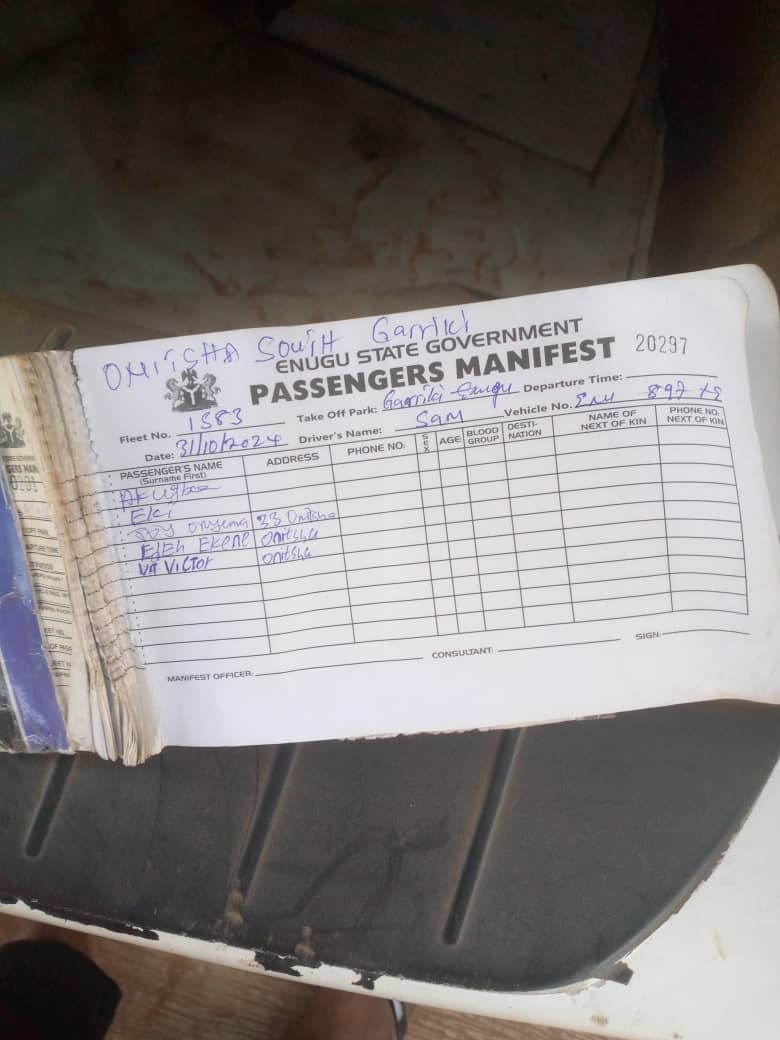 ONITSHA SOUTH Garriki
ENUGU STATE GOVERNMENT
PASSENGERS MANIFEST 20297
Fleet No. 1583 Take Off Park: Garriki Enugu Departure Time:
Date: 31/10/2024 Driver's Name: Sam Vehicle No.
PASSENGER'S NAME (Surname First) ADDRESS PHONE NO: SEX AGE BLOOD GROUP DESTI-NATION NAME OF NEXT OF KIN PHONE NO. NEXT OF KIN
Joy Onyema 33 Onitsha
EJEH EKENE Onitsha
VICTOR Onitsha
MANIFEST OFFICER: CONSULTANT: SIGN: